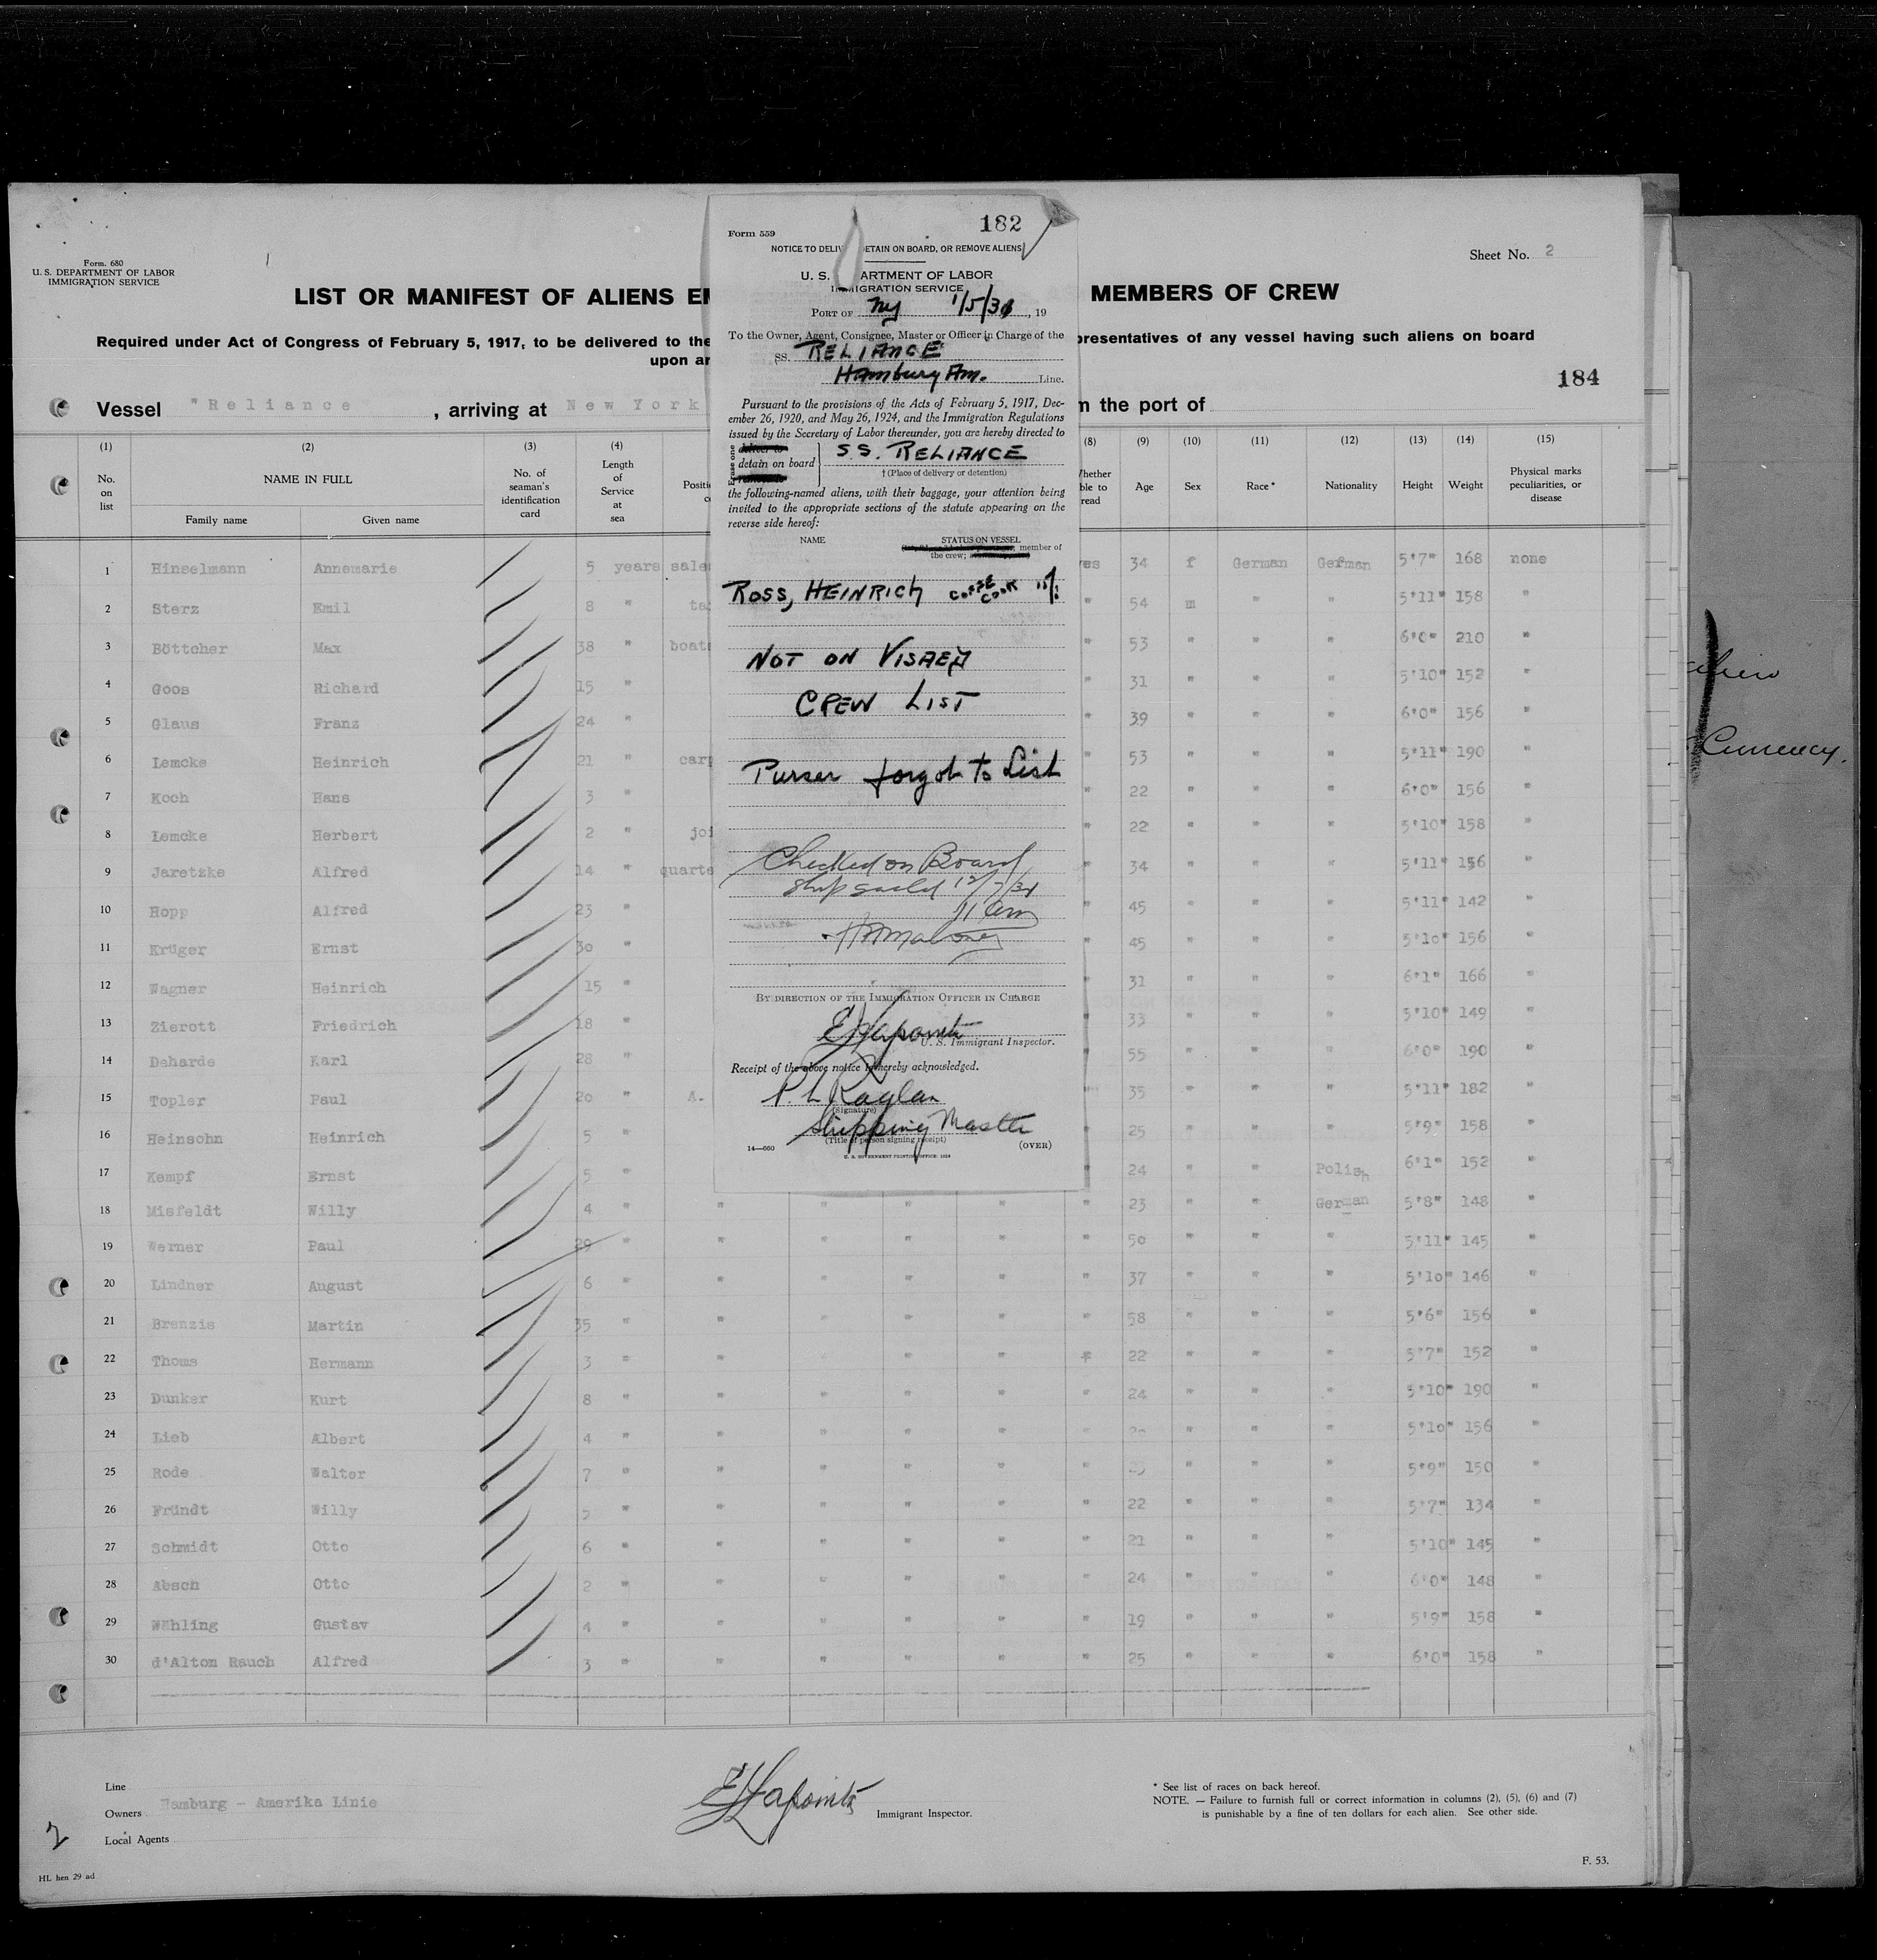 182
Form 559
NOTICE TO DELIV ETAIN ON BOARD, OR REMOVE ALIENS
U. S. ARTMENT OF LABOR
IMMIGRATION SERVICE
PORT OF NY 1/5/31, 19
To the Owner, Agent, Consignee, Master or Officer in Charge of the
SS. RELIANCE
Hamburg Am. Line.
Pursuant to the provisions of the Acts of February 5, 1917, Dec-
ember 26, 1920, and May 26, 1924, and the Immigration Regulations
issued by the Secretary of Labor thereunder, you are hereby directed to
Erase one deliver to
detain on board S.S. RELIANCE
† (Place of delivery or detention)
the following-named aliens, with their baggage, your attention being
invited to the appropriate sections of the statute appearing on the
reverse side hereof:
NAME STATUS ON VESSEL
member of
the crew;
ROSS, HEINRICH COFFEE COOK
NOT ON VISAED
CREW LIST
Purser forgot to List
Checked on Board
Ship sailed
11 am
BY DIRECTION OF THE IMMIGRATION OFFICER IN CHARGE
U. S. Immigrant Inspector.
Receipt of the above notice is hereby acknowledged.
P. L. Raglan
(Signature)
Shipping Master
(Title of person signing receipt)
14—660 (OVER)
U. S. GOVERNMENT PRINTING OFFICE: 1929
Form. 680
U. S. DEPARTMENT OF LABOR
IMMIGRATION SERVICE
Sheet No. 2
LIST OR MANIFEST OF ALIENS EM MEMBERS OF CREW
Required under Act of Congress of February 5, 1917, to be delivered to the presentatives of any vessel having such aliens on board
upon ar
184
Vessel "Reliance , arriving at New York m the port of
(1) (2) (3) (4) (8) (9) (10) (11) (12) (13) (14) (15)
No. on list NAME IN FULL No. of seaman's identification card Length of Service at sea Positi Whether ble to read Age Sex Race* Nationality Height Weight Physical marks peculiarities, or disease
Family name Given name
1 Hinselmann Annemarie 5 years sale yes 34 f German German 5'7" 168 none
2 Sterz Emil 8 " ta " 54 m " " 5'11" 158 "
3 Böttcher Max 38 " boats " 53 " " " 6'0" 210 "
4 Goos Richard 15 " " 31 " " " 5'10" 152 "
5 Glaus Franz 24 " " 39 " " " 6'0" 156 "
6 Lemcke Heinrich 21 " carp " 53 " " " 5'11" 190 "
7 Koch Hans 3 " " 22 " " " 6'0" 156 "
8 Lemcke Herbert 2 " joi " 22 " " " 5'10" 158 "
9 Jaretzke Alfred 14 " quarte " 34 " " " 5'11" 156 "
10 Hopp Alfred 23 " " 45 " " " 5'11" 142 "
11 Krüger Ernst 30 " " 45 " " " 5'10" 156 "
12 Wagner Heinrich 15 " " 31 " " " 6'1" 166 "
13 Zierott Friedrich 18 " " 33 " " " 5'10" 149 "
14 Deharde Karl 28 " " 55 " " " 6'0" 190 "
15 Topler Paul 20 " A. " 35 " " " 5'11" 182 "
16 Heinsohn Heinrich 5 " " 25 " " " 5'9" 158 "
17 Kempf Ernst 5 " " 24 " " Polish 6'1" 152 "
18 Misfeldt Willy 4 " " " " " " 23 " " German 5'8" 148 "
19 Werner Paul 29 " " " " " " 50 " " " 5'11" 145 "
20 Lindner August 6 " " " " " " 37 " " " 5'10" 146 "
21 Brenzis Martin 35 " " " " " " 58 " " " 5'6" 156 "
22 Thoms Hermann 3 " " " " " " 22 " " " 5'7" 152 "
23 Dunker Kurt 8 " " " " " " 24 " " " 5'10" 190 "
24 Lieb Albert 4 " " " " " " " " " 5'10" 156 "
25 Rode Walter 7 " " " " " " " " " 5'9" 150 "
26 Fründt Willy 5 " " " " " " 22 " " " 5'7" 134 "
27 Schmidt Otto 6 " " " " " " 21 " " " 5'10" 145 "
28 Absch Otto 2 " " " " " " 24 " " " 6'0" 148 "
29 Wähling Gustav 4 " " " " " " 19 " " " 5'9" 158 "
30 d'Alton Rauch Alfred 3 " " " " " " 25 " " " 6'0" 158 "
Line
Owners Hamburg - Amerika Linie
Local Agents
Immigrant Inspector.
* See list of races on back hereof.
NOTE. — Failure to furnish full or correct information in columns (2), (5), (6) and (7)
is punishable by a fine of ten dollars for each alien. See other side.
2
HL hen 29 ad
F. 53.